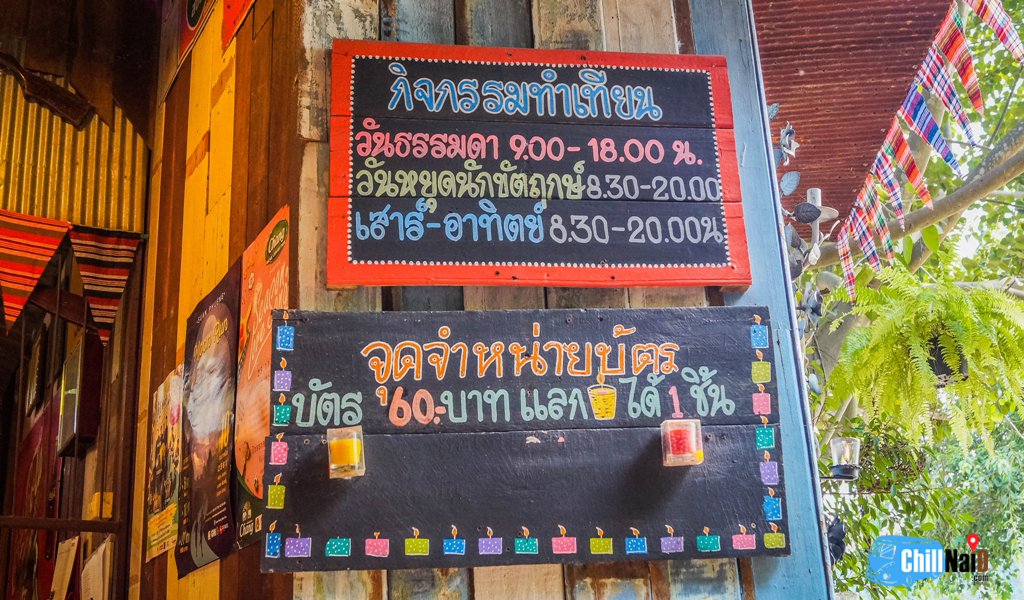 กิจกรรมทำเทียน
วันธรรมดา 9.00 - 18.00 น.
วันหยุดนักขัตฤกษ์ 8.30-20.00
เสาร์-อาทิตย์ 8.30-20.00น
จุดจำหน่ายบัตร
บัตร 60.-บาท แลก ได้ 1 ชิ้น
Chang
Chang
ChillNaiD
.com